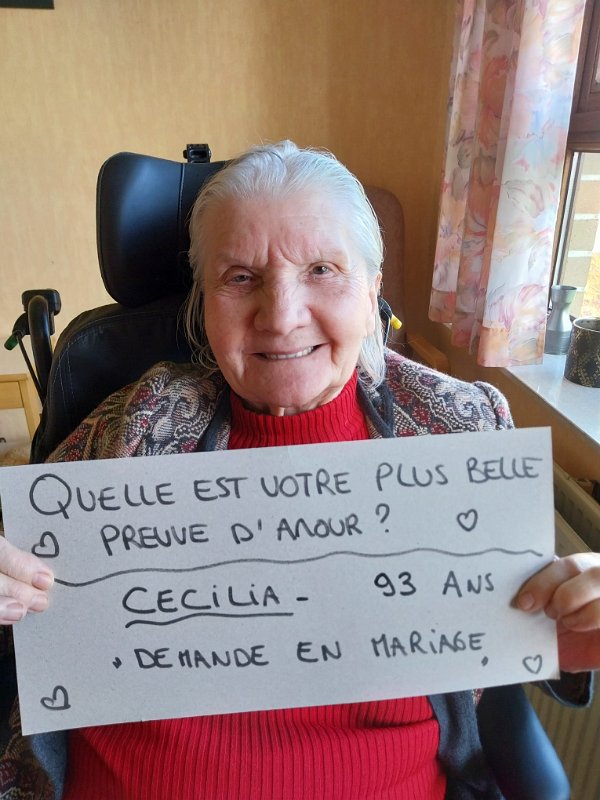 QUELLE EST VOTRE PLUS BELLE
PREUVE D'AMOUR ?
CECILIA - 93 ANS
"DEMANDE EN MARIAGE"